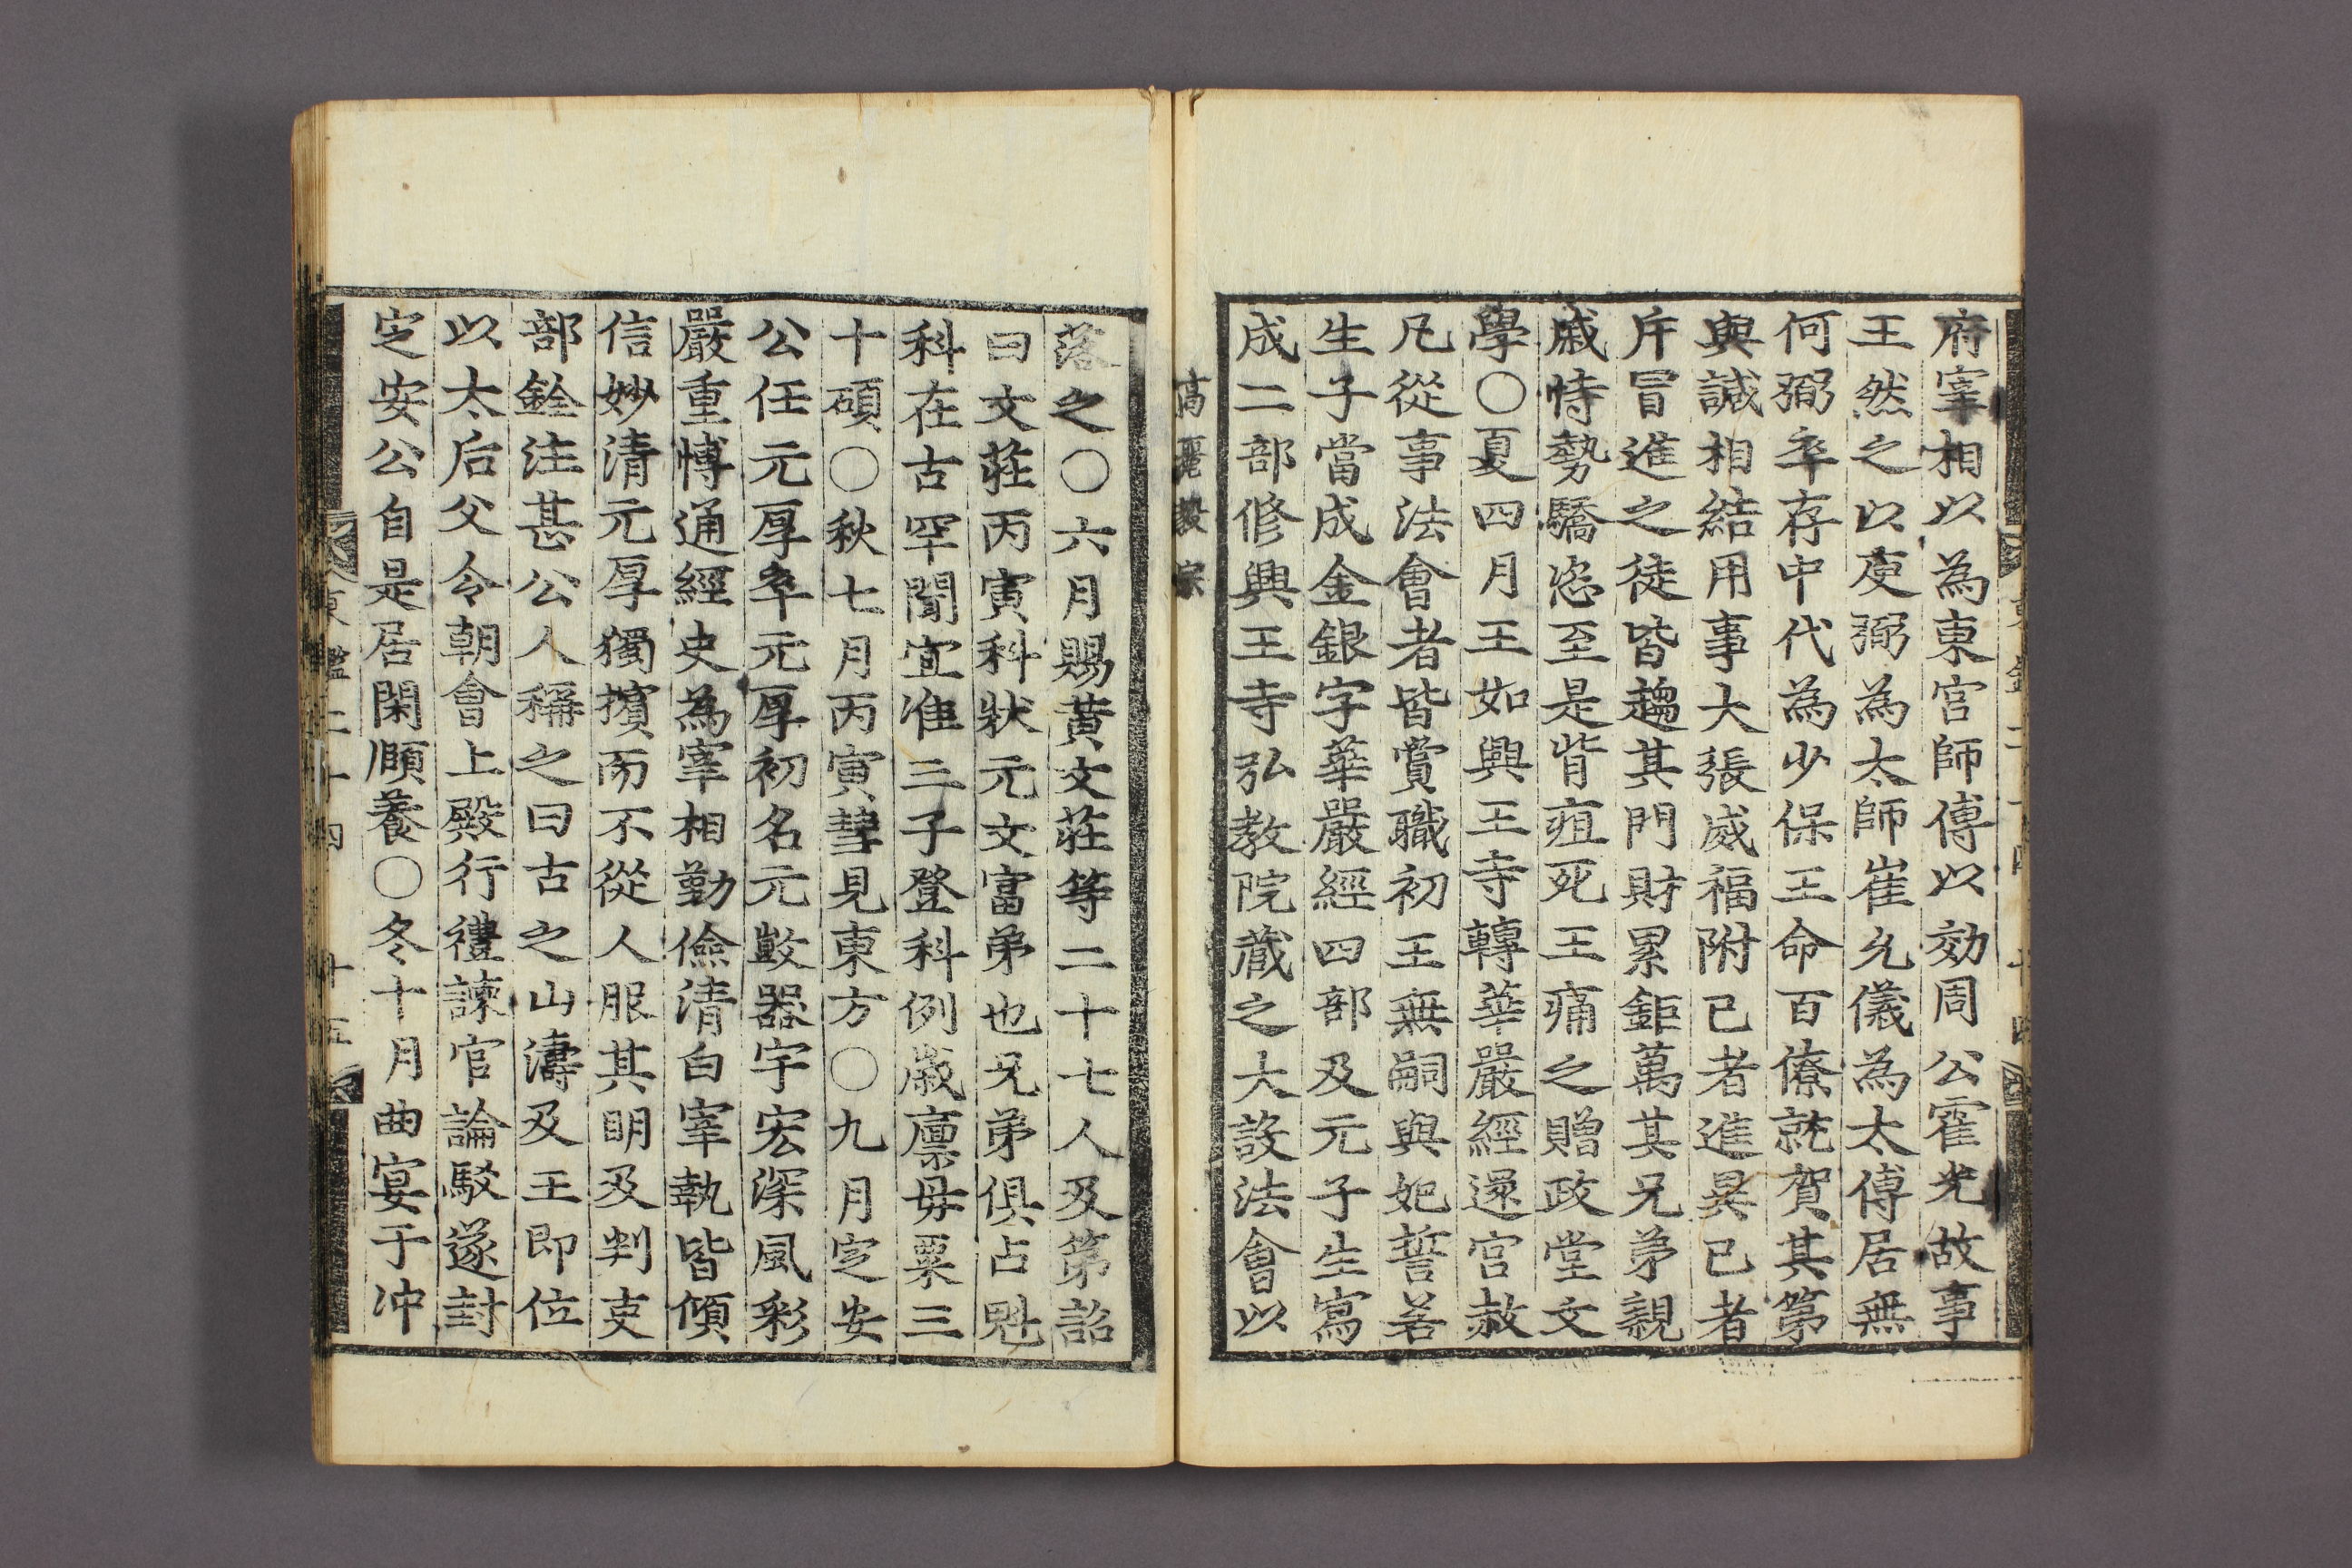 府宰相以為東宮師傅以效周公霍光故事
王然之以庾弼為太師崔允儀為太傅居無
何弼卒存中代為少保王命百僚就賀其第
與諴相結用事大張威福附已者進異已者
斥冒進之徒皆趨其門財累鉅萬其兄弟親
戚恃勢驕恣至是背疽死王痛之贈政堂文
學○夏四月王如興王寺轉華嚴經還宮赦
凡從事法會者皆賞職初王無嗣與妃誓若
生子當成金銀字華嚴經四部及元子生寫
成二部修興王寺弘教院藏之大設法會以
高麗毅宗
落之○六月賜黃文莊等二十七人及第詔
曰文莊丙寅科狀元文富弟也兄弟俱占魁
科在古罕聞宜准三子登科例歲廩母粟三
十碩○秋七月丙寅彗見東方○九月定安
公任元厚卒元厚初名元敳器宇宏深風彩
嚴重博通經史為宰相勤儉清白宰執皆傾
信妙清元厚獨擯而不從人服其明及判吏
部銓注甚公人稱之曰古之山濤及王即位
以太后父令朝會上殿行禮諫官論駁遂封
定安公自是居閑頤養○冬十月曲宴于冲
東鑑二十四 十五